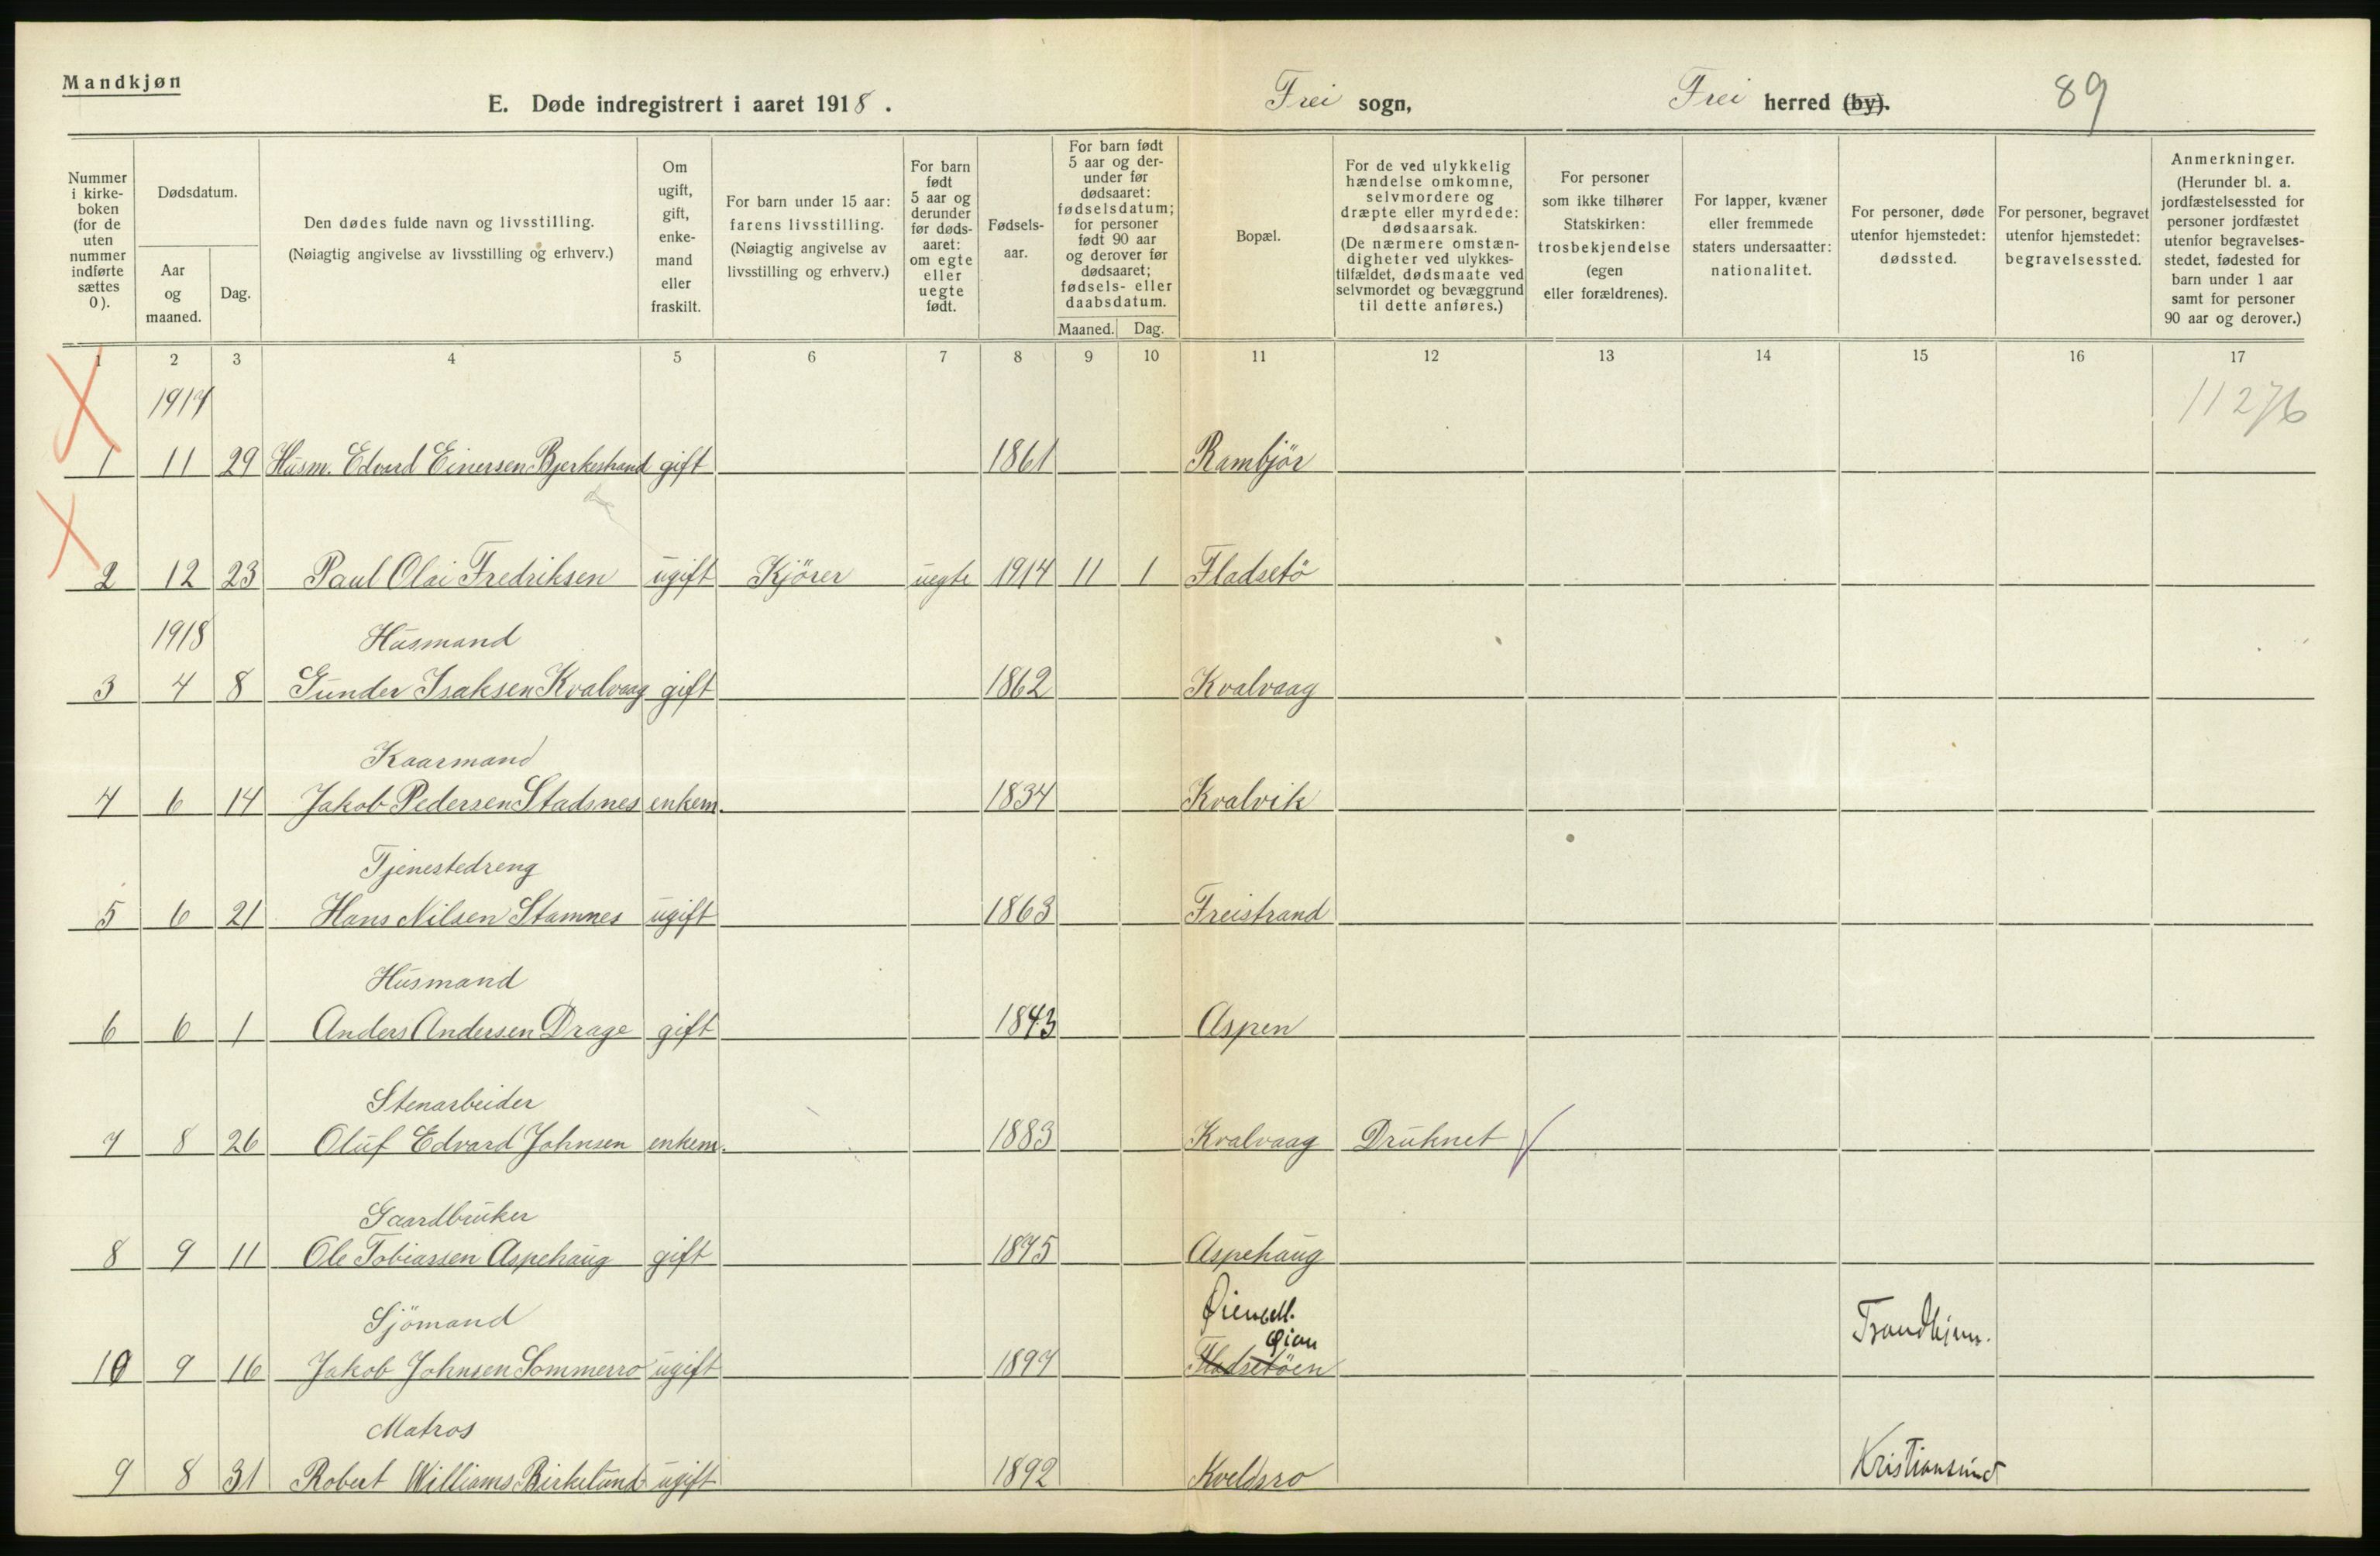 Mandkjøn
E. Døde indregistrert i aaret 1918. Frei sogn, Frei herred (by). 89
Nummer i kirke-boken (for de uten nummer indførte sættes 0).
Dødsdatum.
Aar og maaned.
Dag.
Den dødes fulde navn og livsstilling.
(Nøiagtig angivelse av livsstilling og erhverv.)
Om ugift, gift, enke-mand eller fraskilt.
For barn under 15 aar: farens livsstilling.
(Nøiagtig angivelse av livsstilling og erhverv.)
For barn født 5 aar og derunder før døds-aaret: om egte eller uegte født.
Fødsels-aar.
For barn født 5 aar og der-under før dødsaaret: fødselsdatum; for personer født 90 aar og derover før dødsaaret; fødsels- eller daabsdatum.
Maaned. Dag.
Bopæl.
For de ved ulykkelig hændelse omkomne, selvmordere og dræpte eller myrdede: dødsaarsak.
(De nærmere omstæn-digheter ved ulykkes-tilfældet, dødsmaate ved selvmordet og bevæggrund til dette anføres.)
For personer som ikke tilhører Statskirken: trosbekjendelse (egen eller forældrenes).
For lapper, kvæner eller fremmede staters undersaatter: nationalitet.
For personer, døde utenfor hjemstedet: dødssted.
For personer, begravet utenfor hjemstedet: begravelsessted.
Anmerkninger.
(Herunder bl. a. jordfæstelsessted for personer jordfæstet utenfor begravelses-stedet, fødested for barn under 1 aar samt for personer 90 aar og derover.)
1 2 3 4 5 6 7 8 9 10 11 12 13 14 15 16 17
1917 11276
1 11 29 Husm. Edvard Einersen Bjerkestrand gift 1861 Rambjör
2 12 23 Paul Olai Fredriksen ugift Kjörer uegte 1914 11 1 Fladsetö
1918 Husmand
3 4 8 Gunder Isaksen Kvalvaag gift 1862 Kvalvaag
Kaarmand
4 6 14 Jakob Pedersen Stadsnes enkem. 1834 Kvalvik
Tjenestedreng
5 6 21 Hans Nilsen Stamnes ugift 1863 Freistrand
Husmand
6 6 1 Anders Andersen Drage gift 1843 Aspen
Stenarbeider
7 8 26 Oluf Edvard Johnsen enkem. 1883 Kvalvaag Druknet
Gaardbruker
8 9 11 Ole Tobiassen Aspehaug gift 1875 Aspehaug
Sjömand Trondhjem.
Øien
10 9 16 Jakob Johnsen Sommerro ugift 1897 Fladsetöen
Matros
9 8 31 Robert Williams Birkelund ugift 1892 Kveldsro Kristiansund